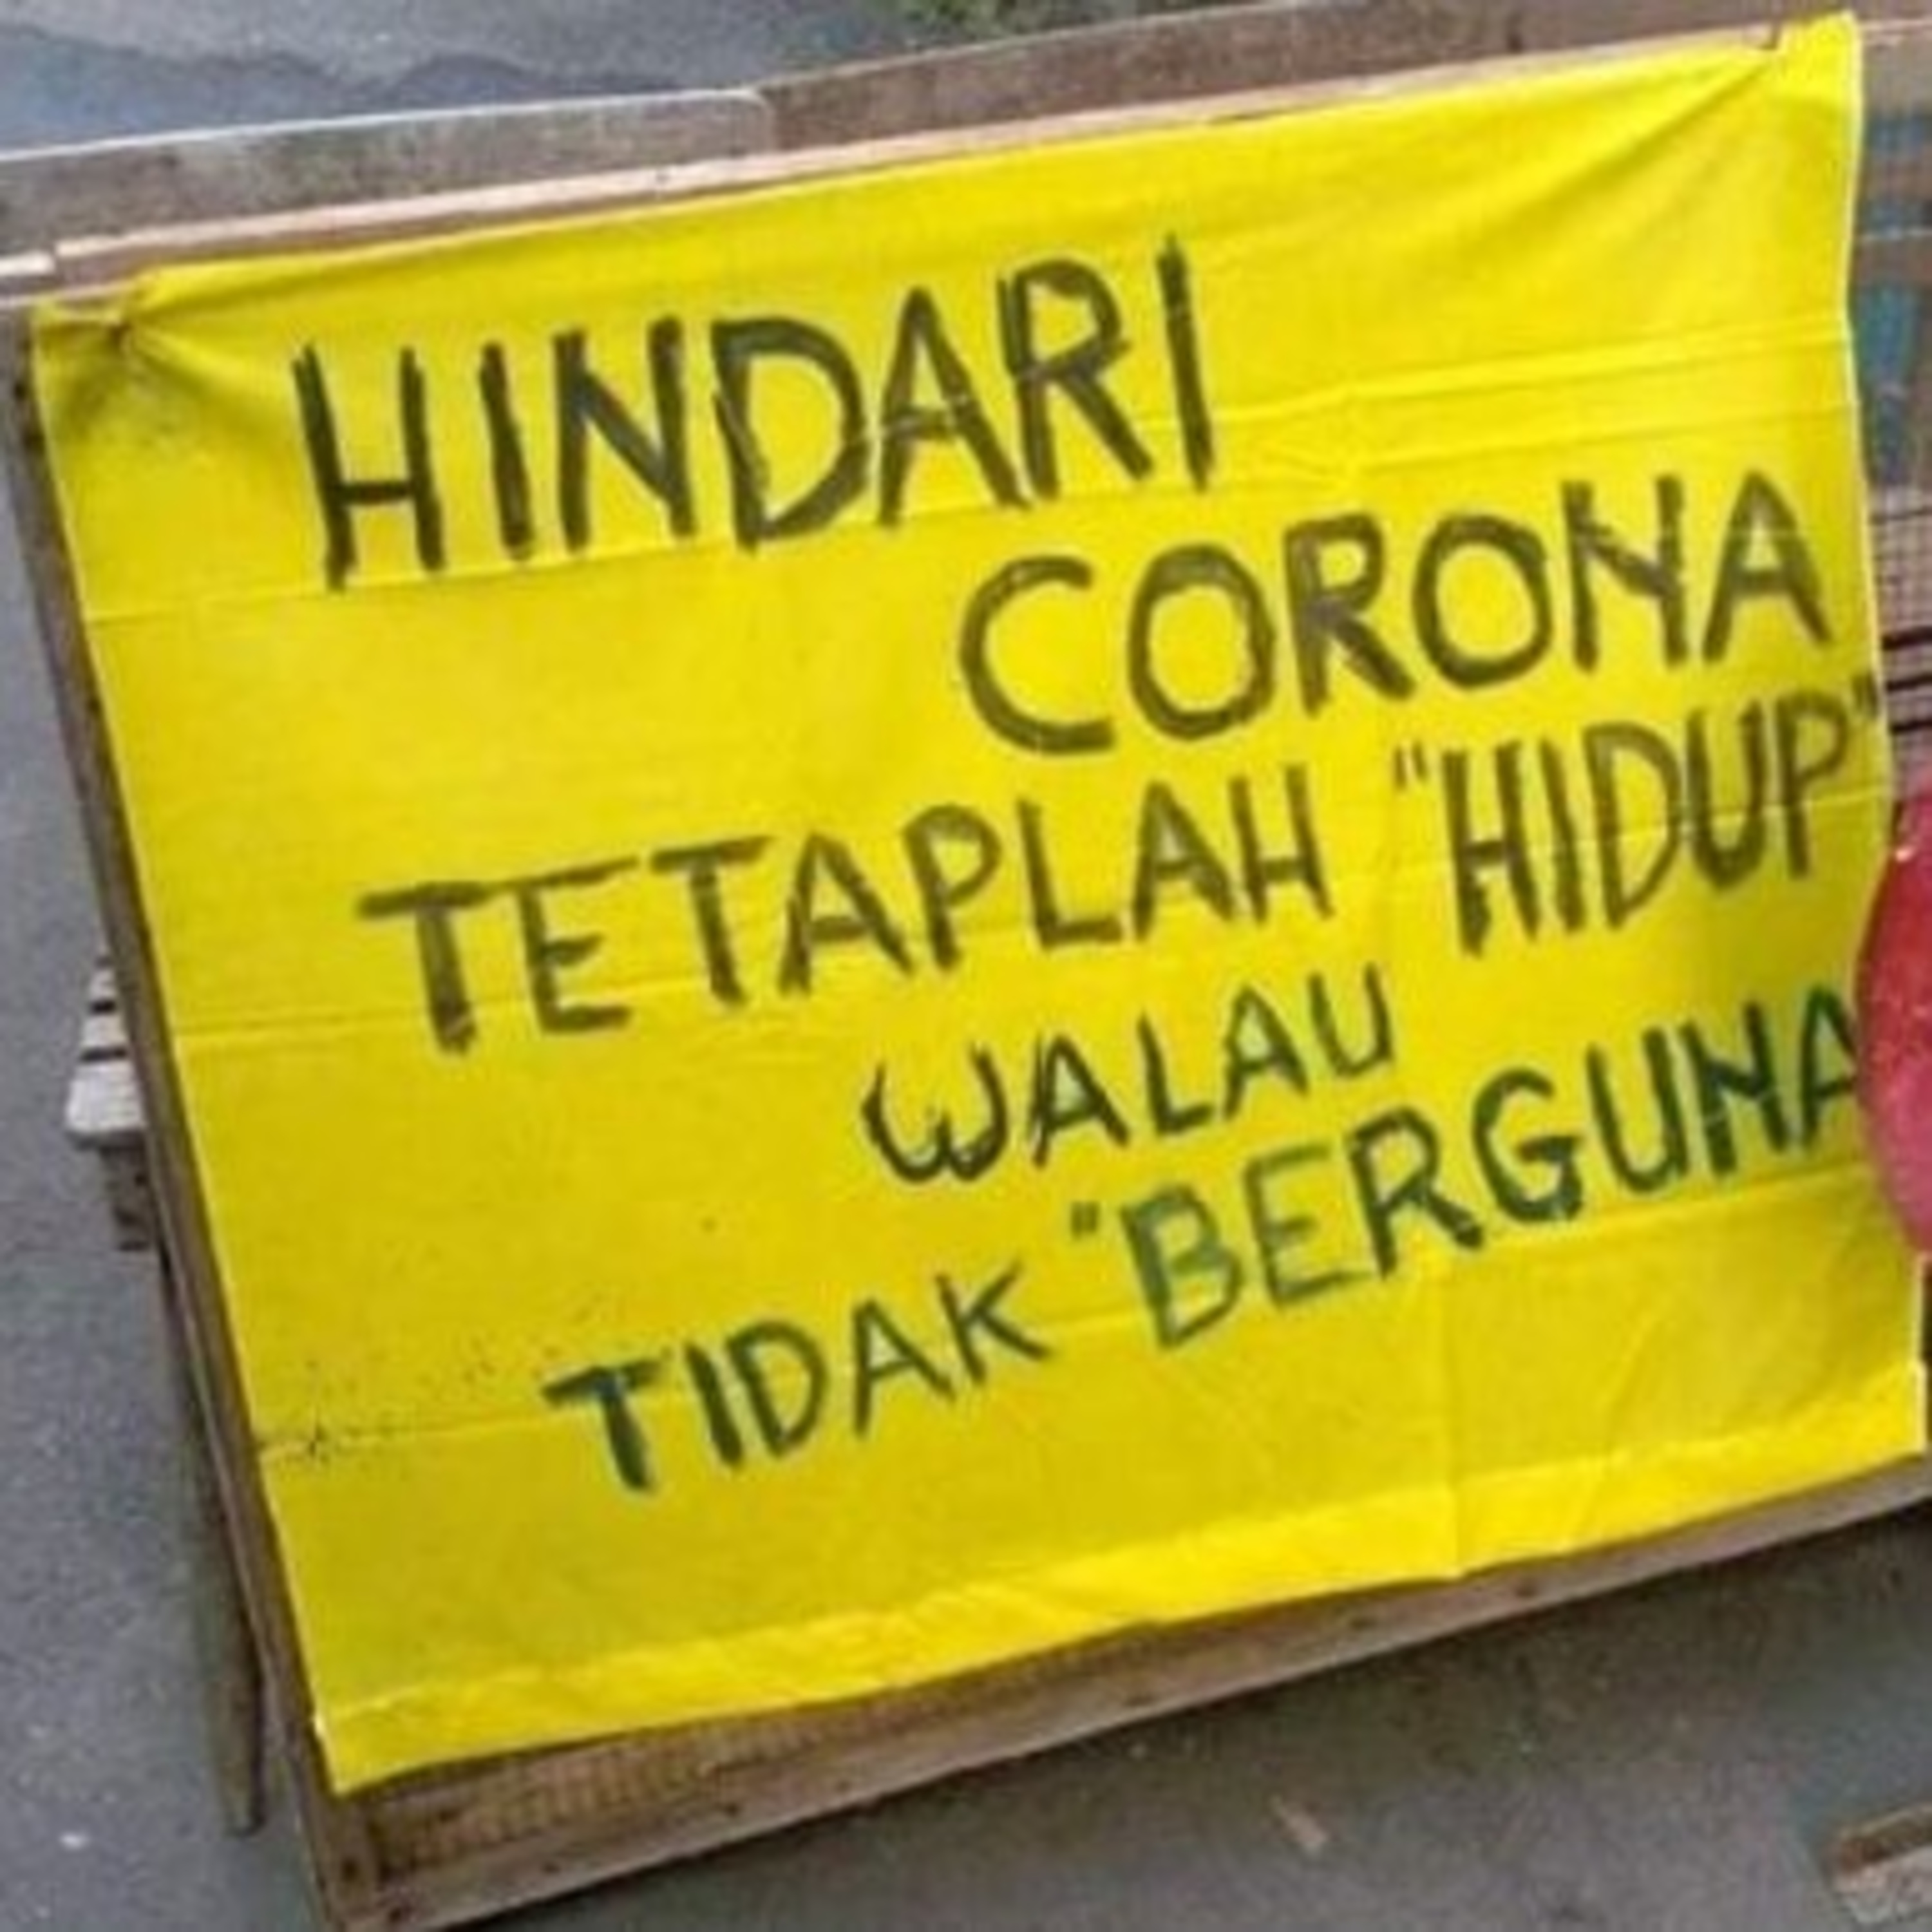 HINDARI
CORONA
TETAPLAH "HIDUP"
WALAU
TIDAK "BERGUNA